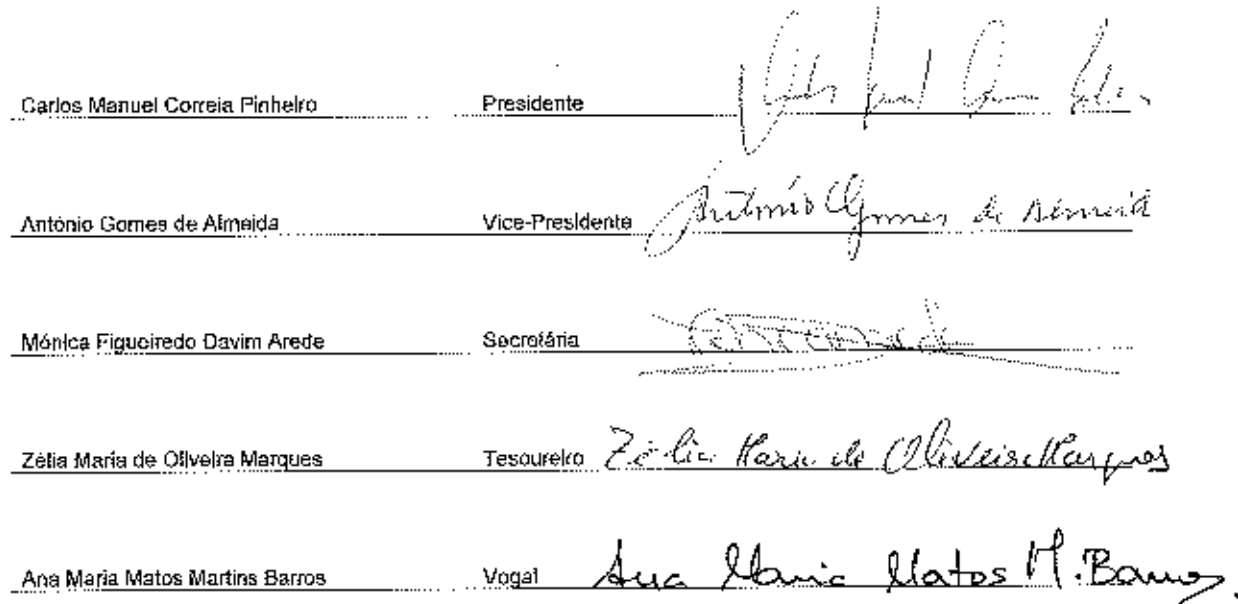 Carlos Manuel Correia Pinheiro Presidente
António Gomes de Almeida Vice-Presidente António Gomes de Almeida
Mónica Figueiredo Davim Arede Secretária
Zélia Maria de Oliveira Marques Tesoureiro Zélia Maria de Oliveira Marques
Ana Maria Matos Martins Barros Vogal Ana Maria Matos M. Barros.